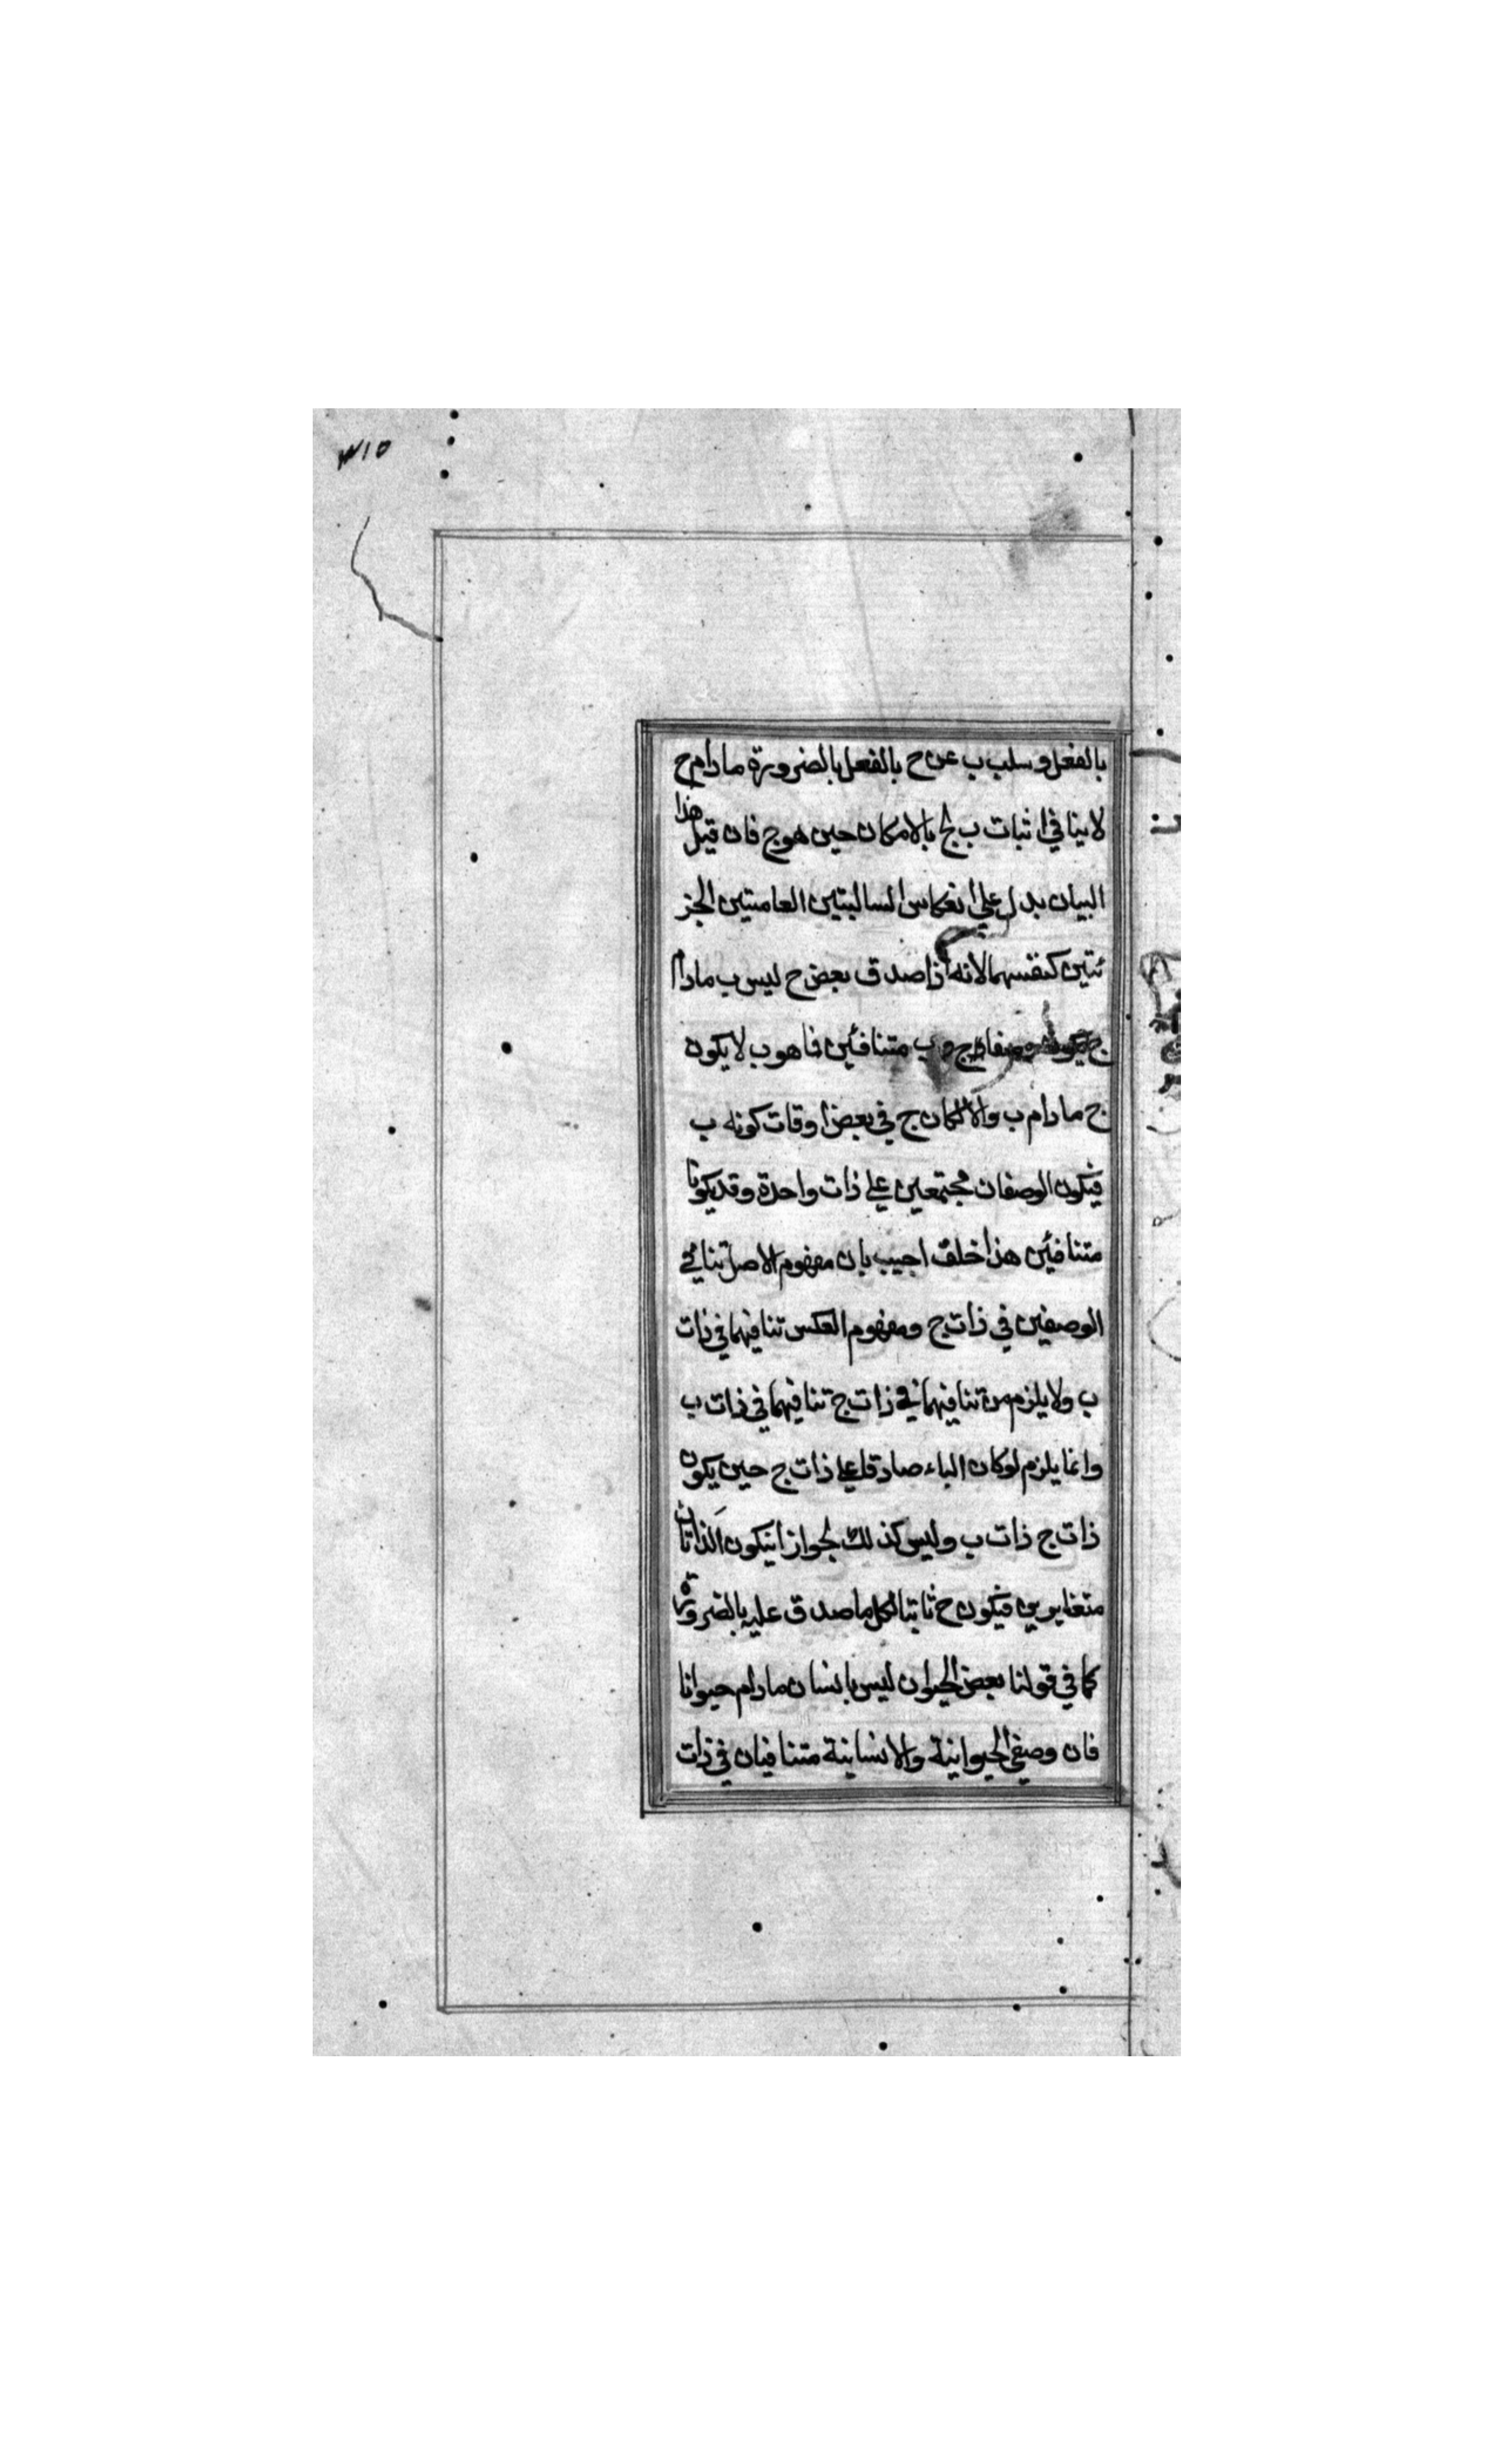 ٣١٥
بالفعل وسلب ب عن ح بالفعل بالضرورة مادام ح
لاينافي اثبات ب لج بالامكان حين هوج فان قيل هذا
البيان يدل علي انعكاس السالبتين العامتين الجز
ئتين كنفسهما لانه اذا صدق بعض ح ليس ب مادام
ج يكون وصفا ج و ب متنافئين فاهوب لايكون
ج مادام ب والالكان ج في بعض اوقات كونه ب
فيكون الوصفان مجتمعين علي ذات واحدة وقد يكونا
متنافئين هذا خلف اجيب بان مفهوم الاصل تنافي
الوصفين في ذات ج ومفهوم العكس تنافيهما في ذات
ب ولا يلزم من تنافيهما في ذات ج تنافيهما في ذات ب
وانما يلزم لوكان الباء صادقا علي ذات ج حين يكون
ذات ج ذات ب وليس كذلك لجواز انيكون الذاتان
متغايرين فيكون ح ثابتا لكل ما صدق عليه بالضرورة
كما في قولنا بعض الحيوان ليس بانسان مادام حيوانا
فان وصفي الحيوانية والانسانية متنافيان في ذات